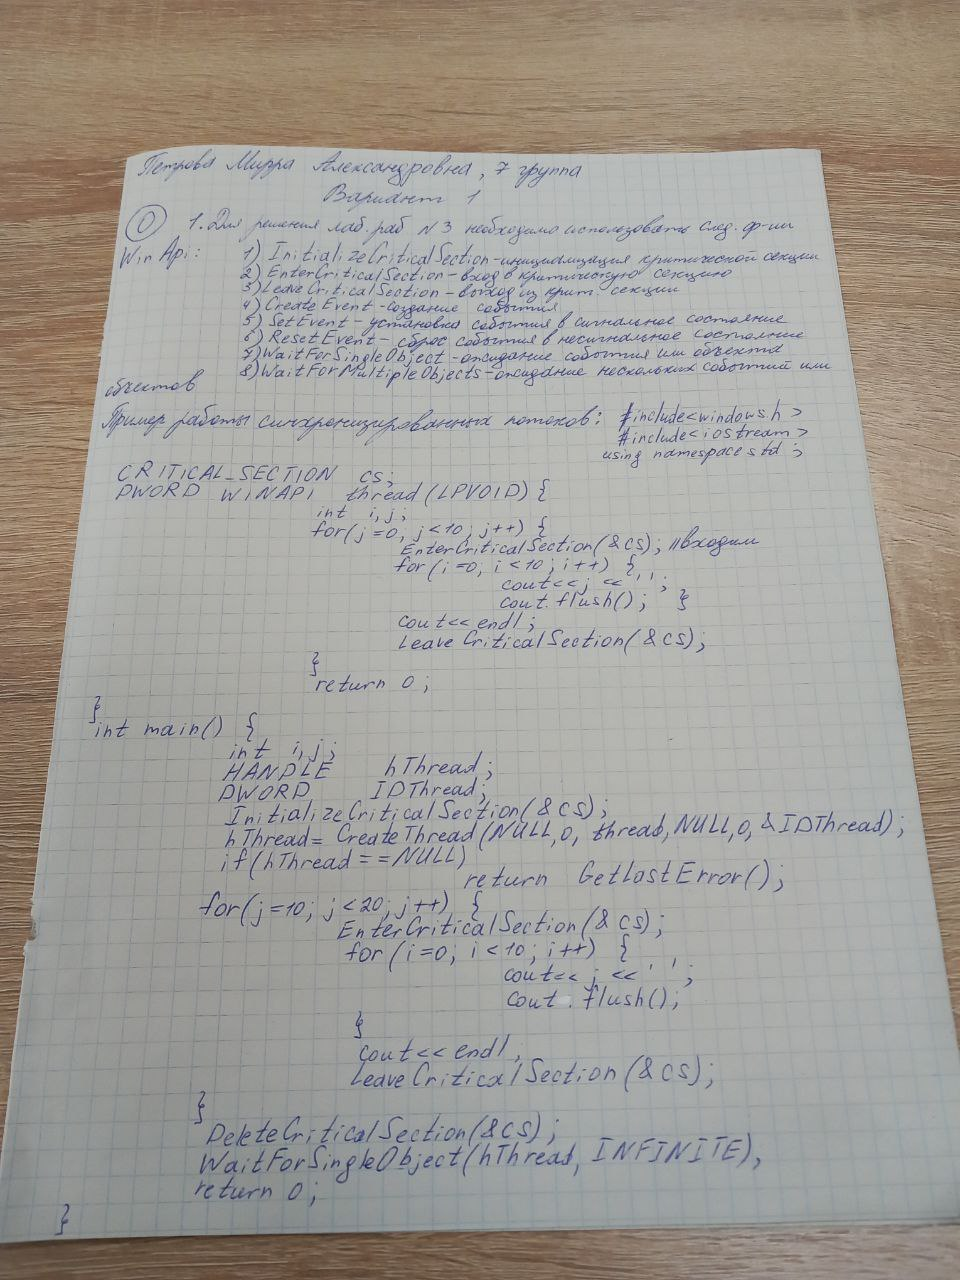 Петрова Мирра Александровна, 7 группа
Вариант 1
0 1. Для решения лаб. раб N 3 необходимо использовать след. ф-ии
Win Api: 1) InitializeCriticalSection - инициализация критической секции
2) EnterCriticalSection - вход в критическую секцию
3) LeaveCriticalSection - выход из крит. секции
4) CreateEvent - создание события
5) SetEvent - установка события в сигнальное состояние
6) ResetEvent - сброс события в несигнальное состояние
7) WaitForSingleObject - ожидание события или объекта
8) WaitForMultipleObjects - ожидание нескольких событий или
объектов
Пример работы синхронизированных потоков: #include<windows.h>
#include<iostream>
using namespace std;
CRITICAL_SECTION cs;
DWORD WINAPI thread(LPVOID) {
int i,j;
for(j=0; j<10; j++) {
EnterCriticalSection(&cs); //входим
for(i=0; i<10; i++) {
cout<<j<<' ';
cout.flush(); }
cout<<endl;
LeaveCriticalSection(&cs);
}
return 0;
}
int main() {
int i,j;
HANDLE hThread;
DWORD IDThread;
InitializeCriticalSection(&cs);
hThread= CreateThread(NULL,0, thread,NULL,0,&IDThread);
if(hThread==NULL)
return GetLastError();
for(j=10; j<20; j++) {
EnterCriticalSection(&cs);
for(i=0; i<10; i++) {
cout<<j<<' ';
cout.flush();
}
cout<<endl;
LeaveCriticalSection(&cs);
}
DeleteCriticalSection(&cs);
WaitForSingleObject(hThread, INFINITE),
return 0;
}